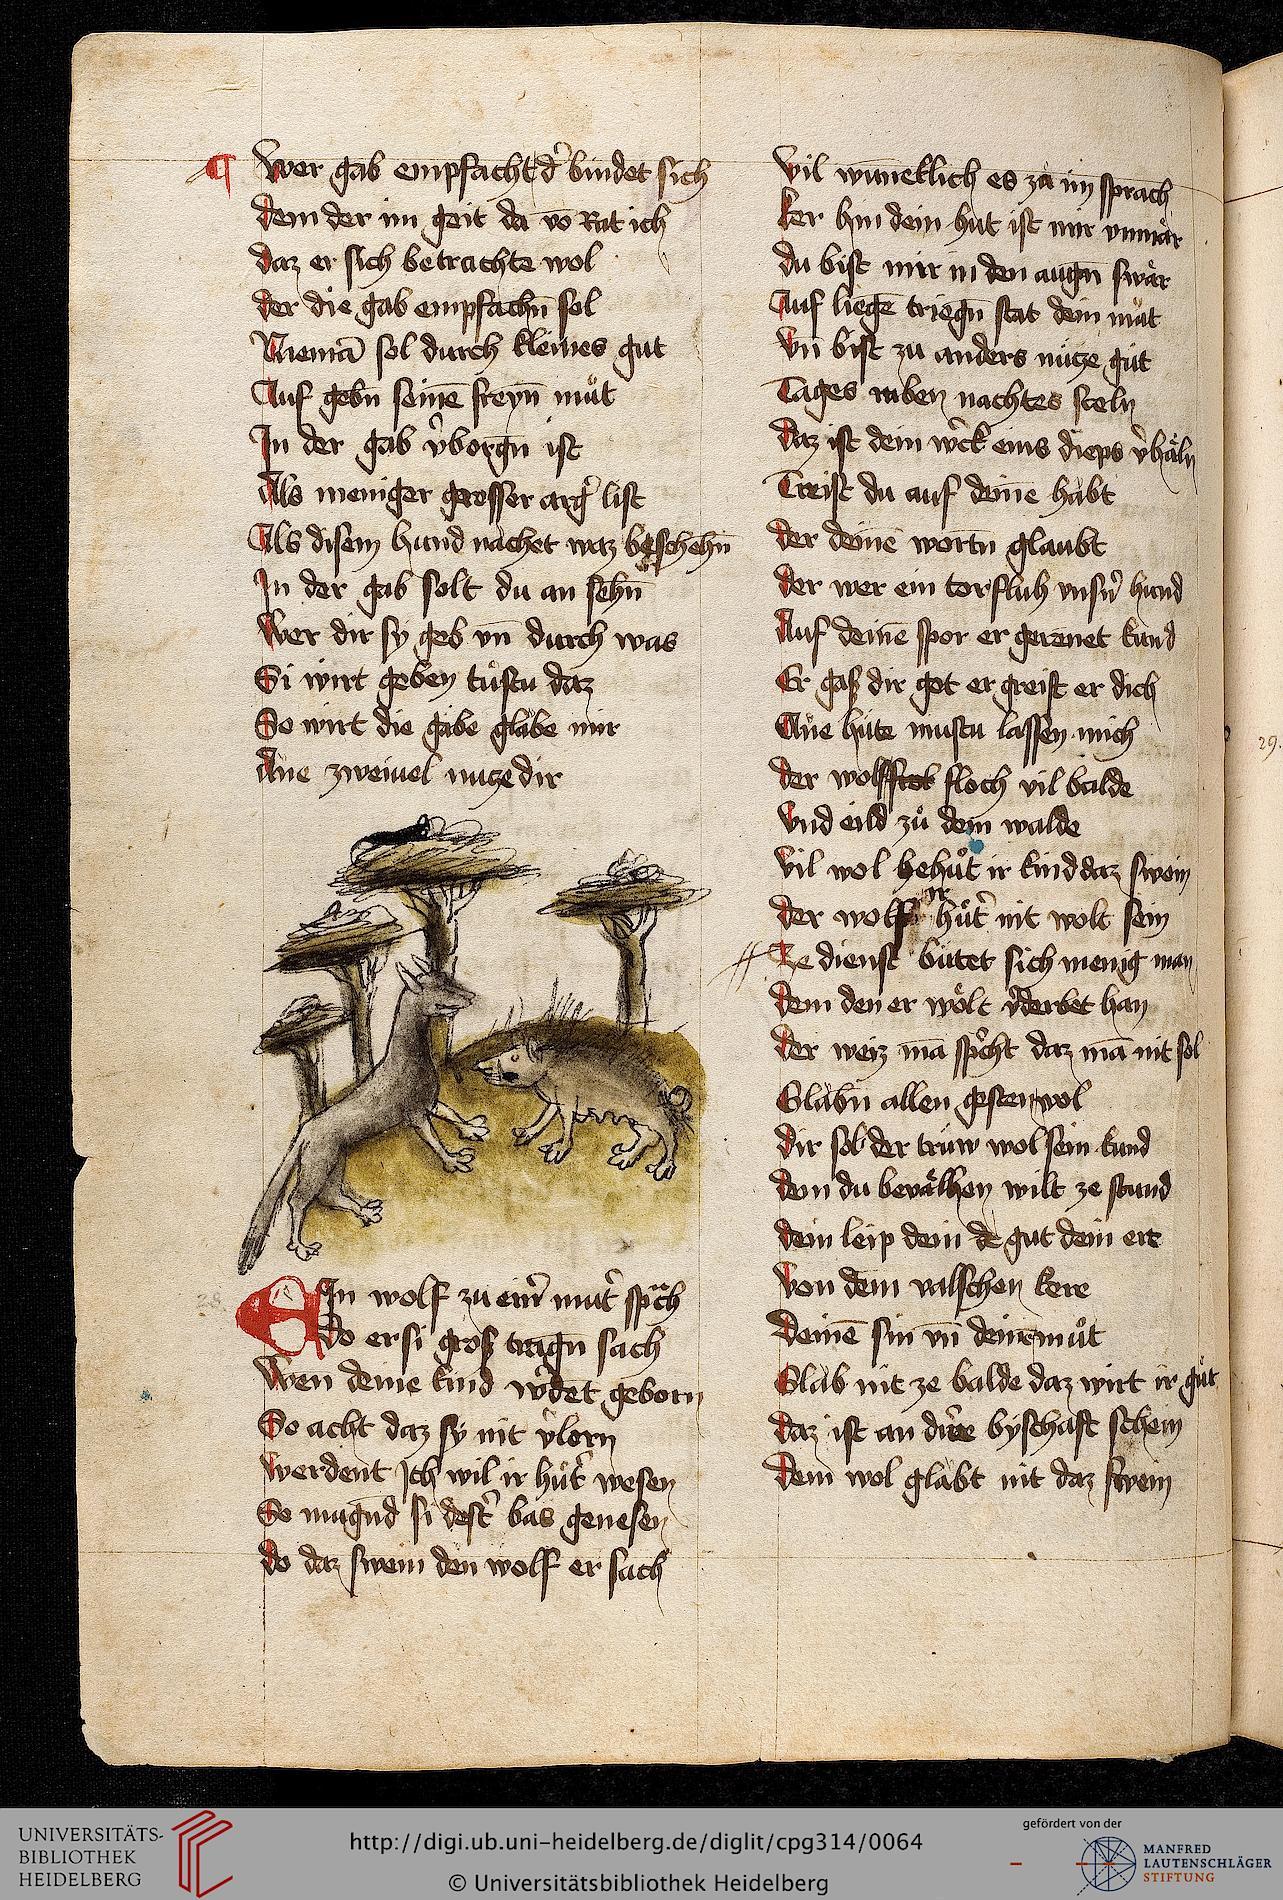 Wer gab empfacht d' bindet sich
dem der im geit da vō Rat ich
daz er sich betrachte wol
der die gab empfachn̄ sol
Niemā sol durch kleines gut
Auf gebn̄ seinē freyn̄ můt
In der gab v'borgn̄ ist
Als meniger grosser arg' list
Als disem hund nachet waz beschehn̄
In der gab solt du an sehn̄
Wer dir sy geb vn̄ durch was
Si wirt geben tůstu daz
So wirt die gabe glabe mir
Ane zweiuel nucze dir
EIn wolf zu ein' mut' sprach
do er si gros tragn̄ sach
Wen deine kind w'dent geborn
So acht daz sy nit v'lorn
werdent Ich wil ir hůt' wesen
So mugnd si dest' bas genesen
do daz swein den wolf er sach
Vil wūneklich es zu im sprach
ker hin dein hut ist mir vnmär
du bist mir in den augn̄ swär
Auf liegē triegn̄ stat dein můt
Vn̄ bist zu anders nücze gůt
Tages ruben nachtes steln
daz ist dein w'ck eins dieps v'häln
Treist du auf deinē habt
der deinē wortn̄ glaubt
der wer ein tor fluh vnsn' hund
Auf deinē spor er gerenet kund
Er gaß dir got ergreift er dich
Ane hüte mustu lassen mich
der wolf floch vil balde
Vnd eild zů dem walde
Vil wol behůt ir kind daz swein
der wolf ir hůt' nit wolt sein
Ze dienst bütet sich menig man
dem den er wölt v'derbet han
der weiz mā sp'cht daz mā nit sol
Glabn̄ allen gesten wol
dir sol der trüw wol sein kund
dem du beuälhen wilt ze stund
dein leip dein gut dein ere
Von dem valschen kere
deinē sin vn̄ deinē můt
Glab nit ze balde daz wirt ir gůt
daz ist an dire byschaft schein
dem wol glabt nit daz swein
28.
29.
UNIVERSITÄTS-
BIBLIOTHEK
HEIDELBERG
http://digi.ub.uni-heidelberg.de/diglit/cpg314/0064
© Universitätsbibliothek Heidelberg
gefördert von der
MANFRED
LAUTENSCHLÄGER
STIFTUNG